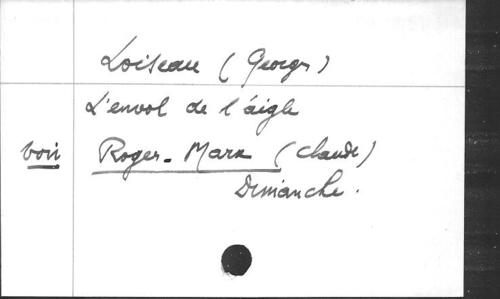 Loiseau (Georges)
L'envol de l'aigle
voir Roger-Marx (Claude)
Dimanche.